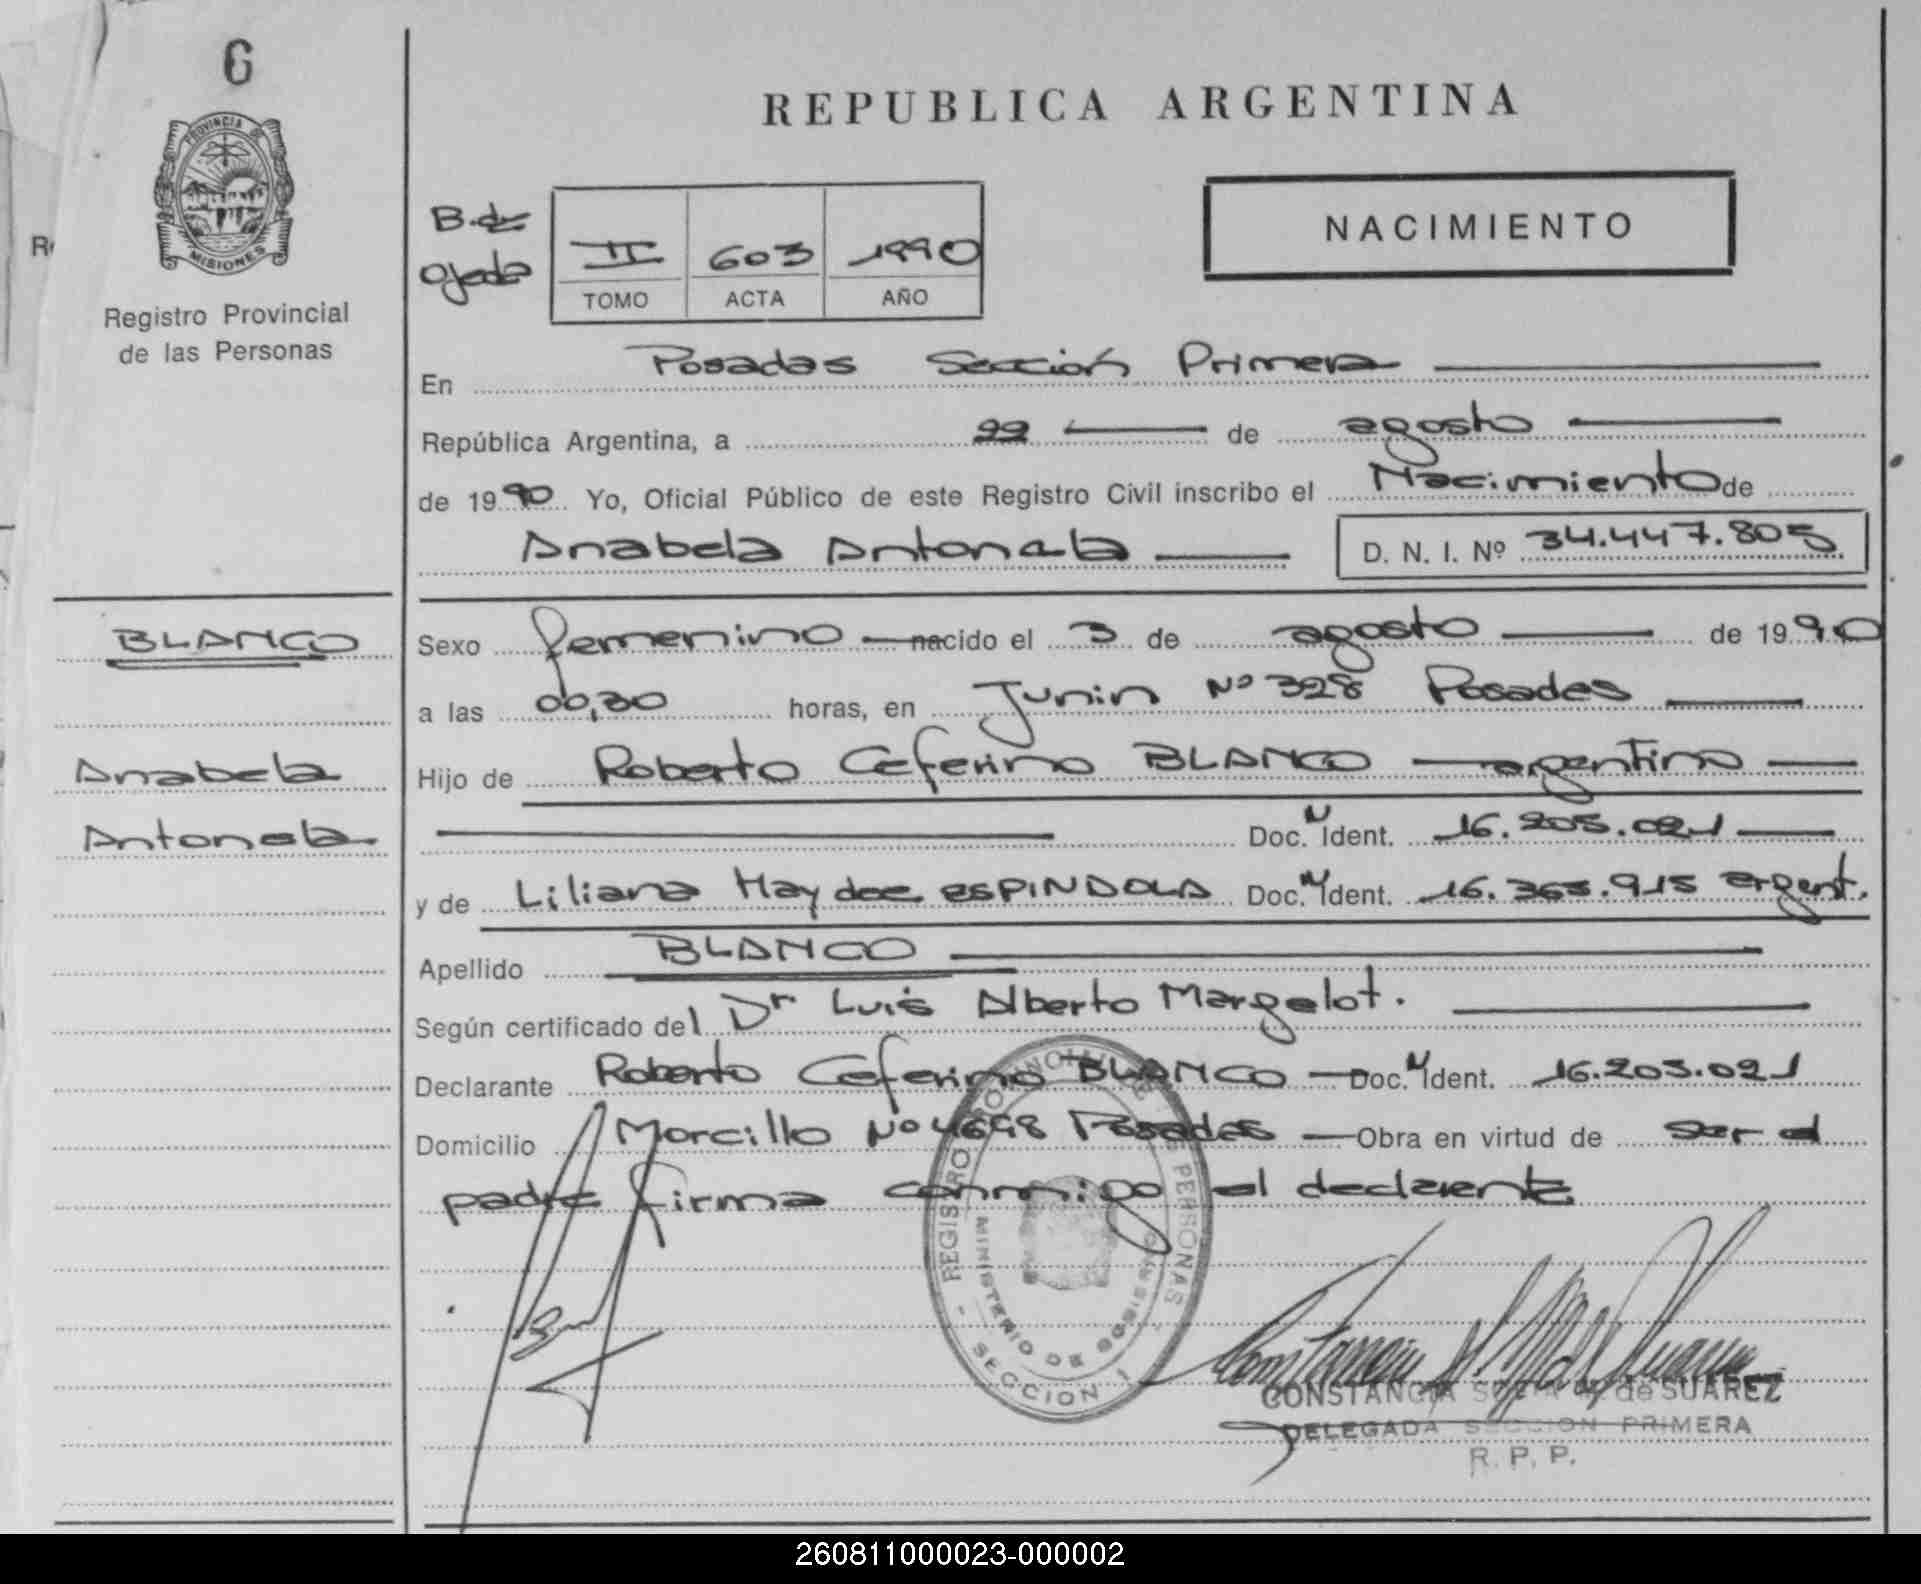 6
PROVINCIA DE
MISIONES
Registro Provincial
de las Personas
REPUBLICA ARGENTINA
NACIMIENTO
B. de
Ojeda
II 603 1990
TOMO ACTA AÑO
En Posadas Sección Primera
República Argentina, a 22 de agosto
de 1990 Yo, Oficial Público de este Registro Civil inscribo el Nacimiento de
Anabela Antonela D. N. I. Nº 34.447.805
BLANCO
Anabela
Antonela
Sexo femenino nacido el 3 de agosto de 1990
a las 00,30 horas, en Junin Nº 328 Posadas
Hijo de Roberto Ceferino BLANCO argentino
Doc. N Ident. 16.205.021
y de Liliana Haydee ESPINDOLA Doc. N Ident. 16.365.915 argent.
Apellido BLANCO
Según certificado del Dr Luis Alberto Margelot.
Declarante Roberto Ceferino BLANCO Doc. N Ident. 16.205.021
Domicilio Morcillo Nº 4698 Posadas Obra en virtud de ser el
padre firma conmigo el declarante
REGISTRO PERSONAS
MINISTERIO DE GOBIERNO
SECCION 1
CONSTANCIA de SUAREZ
DELEGADA SECCION PRIMERA
R. P. P.
260811000023-000002